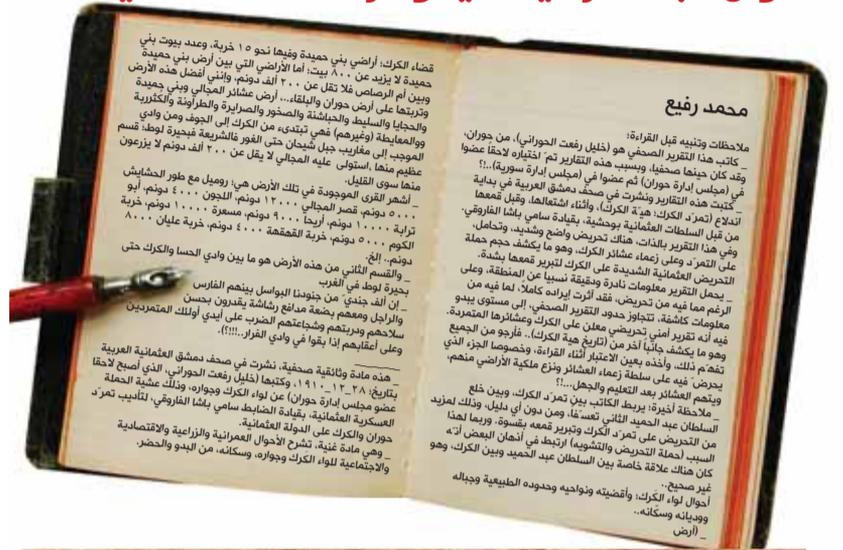 محمد رفيع
ملاحظات وتنبيه قبل القراءة؛
_ كاتب هذا التقرير الصحفي هو (خليل رفعت الحوراني)، من حوران،
وقد كان حينها صحفيا، وبسبب هذه التقارير تمّ اختياره لاحقاً عضوا
في (مجلس إدارة حوران) ثم عضوا في (مجلس إدارة سورية)..!؟
_ كتبت هذه التقارير ونشرت في صحف دمشق العربية في بداية
اندلاع (تمرّد الكرك؛ هيّة الكرك)، وأثناء اشتعالها، وقبل قمعها
من قبل السلطات العثمانية بوحشية، بقيادة سامي باشا الفاروقي.
وفي هذا التقرير بالذات، هناك تحريض واضح وشديد، وتحامل،
على التمرّد وعلى زعماء عشائر الكرك، وهو ما يكشف حجم حملة
التحريض العثمانية الشديدة على الكرك لتبرير قمعها بشدة.
_ يحمل التقرير معلومات نادرة ودقيقة نسبياً عن المنطقة، وعلى
الرغم مما فيه من تحريض، فقد آثرت إيراده كاملاً، لما فيه من
معلومات كاشفة، تتجاوز حدود التقرير الصحفي، إلى مستوى يبدو
فيه أنه تقرير أمني تحريضي معلن على الكرك وعشائرها المتمردة.
وهو ما يكشف جانبا آخر من (تاريخ هية الكرك).. فأرجو من الجميع
تفهّم ذلك، وأخذه بعين الاعتبار أثناء القراءة، وخصوصا الجزء الذي
يحرض فيه على سلطة زعماء العشائر ونزع ملكية الأراضي منهم،
ويتهم العشائر بعد التعليم والجهل...!؟
_ ملاحظة أخيرة؛ يربط الكاتب بين تمرّد الكرك، وبين خلع
السلطان عبد الحميد الثاني تعسّفاً، ومن دون أي دليل، وذلك لمزيد
من التحريض على تمرّد الكرك وتبرير قمعه بقسوة، وربما لهذا
السبب (حملة التحريض والتشويه) ارتبط في أذهان البعض أنّه
كان هناك علاقة خاصة بين السلطان عبد الحميد وبين الكرك، وهو
غير صحيح..
أحوال لواء الكَرك؛ وأقضيته ونواحيه وحدوده الطبيعية وجباله
ووديانه وسكّانه..
_ (أرض
قضاء الكرك؛ أراضي بني حميدة وفيها نحو ١٥ خربة، وعدد بيوت بني
حميدة لا يزيد عن ٨٠٠ بيت؛ أما الأراضي التي بين أرض بني حميدة
وبين أم الرصاص فلا تقل عن ٢٠٠ ألف دونم، وإنني أفضل هذه الأرض
وتربتها على أرض حوران والبلقاء... أرض عشائر المجالي وبني حميدة
والحجايا والسليط والحباشنة والصخور والصرايرة والطراونة والكثربة
ووالمعايطة (وغيرهم) فهي تبتدىء من الكرك إلى الجوف ومن وادي
الموجب إلى مغاريب جبل شيحان حتى الغور فالشريعة فبحيرة لوط؛ قسم
عظيم منها ،استولى عليه المجالي لا يقل عن ٢٠٠ ألف دونم لا يزرعون
منها سوى القليل.
_ أشهر القرى الموجودة في تلك الأرض هي؛ روميل مع طور الحشايش
٥٠٠٠ دونم، قصر المجالي ١٢٠٠٠ دونم، اللجون ٤٠٠٠ دونم، أبو
ترابة ١٠٠٠٠ دونم، أريحا ٩٠٠٠ دونم، مسعرة ١٠٠٠٠ دونم، خربة
الكوم ٥٠٠٠ دونم، خربة القهقهة ٤٠٠٠ دونم، خربة عليان ٨٠٠٠
دونم.. إلخ.
_ والقسم الثاني من هذه الأرض هو ما بين وادي الحسا والكرك حتى
بحيرة لوط في الغرب
_ إن ألف جنديّ من جنودنا البواسل بينهم الفارس
والراجل ومعهم بضعة مدافع رشاشة يقدرون بحسن
سلاحهم ودربتهم وشجاعتهم الضرب على أيدي أولئك المتمردين
وعلى أعقابهم إذا بقوا في وادي الفرار..!!!؟).
_ هذه مادة وثائقية صحفية، نشرت في صحف دمشق العثمانية العربية
بتاريخ؛ ٢٨_١٢_١٩١٠، وكتبها (خليل رفعت الحوراني، الذي أصبح لاحقا
عضو مجلس إدارة حوران) عن لواء الكرك وجواره، وذلك عشية الحملة
العسكرية العثمانية، بقيادة الضابط سامي باشا الفاروقي، لتأديب تمرّد
حوران والكرك على الدولة العثمانية.
_ وهي مادة غنية، تشرح الأحوال العمرانية والزراعية والاقتصادية
والاجتماعية للواء الكَرك وجواره، وسكانه، من البدو والحضر.